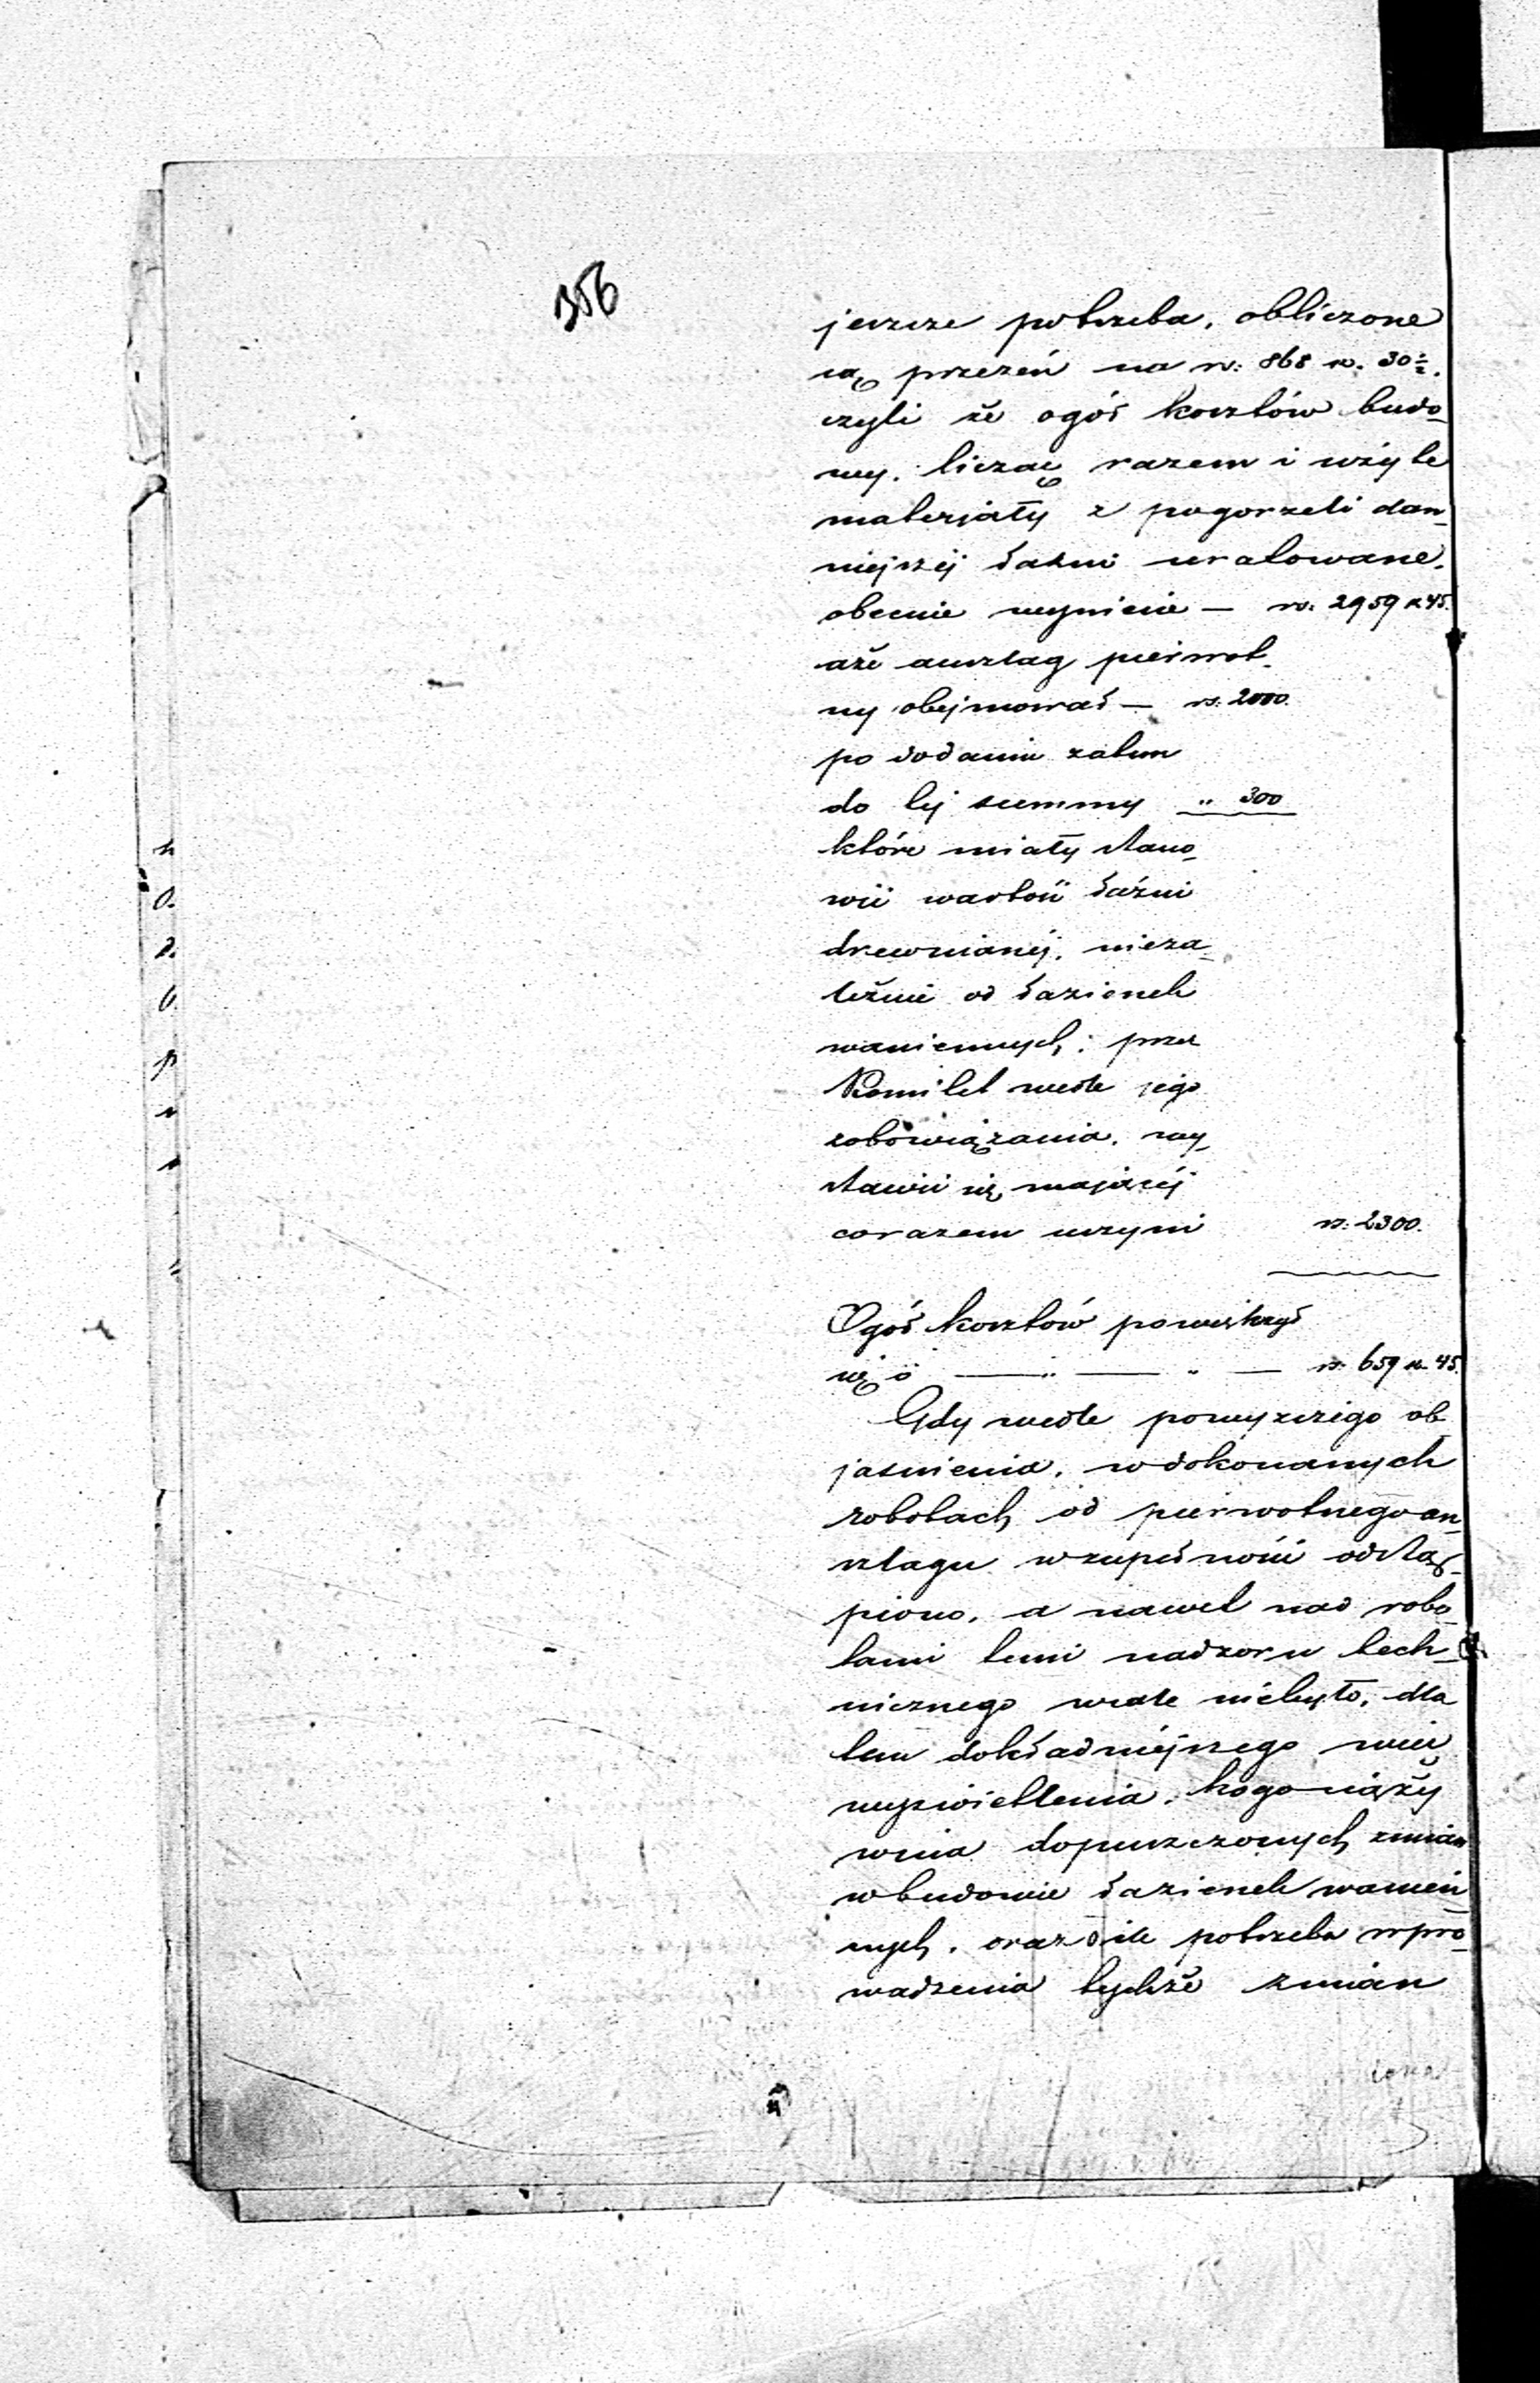 356
jeszcze potrzeba, obliczone
są przezeń na rs: 868 k. 30½.
czyli że ogół kosztów budo-
wy, licząc razem i użyte
materjały z pogorzeli daw-
niejszéj łaźni uratowane,
obecnie wyniesie — rs: 2959 k 45.
aże anszlag pierwot-
ny obejmował — rs: 2000.
po dodaniu zatem
do téj summy " 300
które miały stano-
wić wartość łaźni
drewnianéj, nieza-
leżnie od łazienek
waniennych, przez
Komitet wedle jego
zobowiązania, wy-
stawić się mającéj
co razem uczyni rs: 2300.
Ogół kosztów powiększył
się o — " — " — rs: 659 k. 45.
Gdy wedle powyższego ob-
jaśnienia, w dokonanych
robotach od pierwotnego an-
szlagu w zupełności odstą-
piono, a nawet nad robo-
tami temi nadzoru tech-
nicznego wcale niebyło, dla
tem dokładniejszego więc
wyświetlenia, kogo ciąży
wina dopuszczonych zmian
w budowie łazienek wanien-
nych, oraz o ile potrzeba wpro-
wadzenia tychże zmian